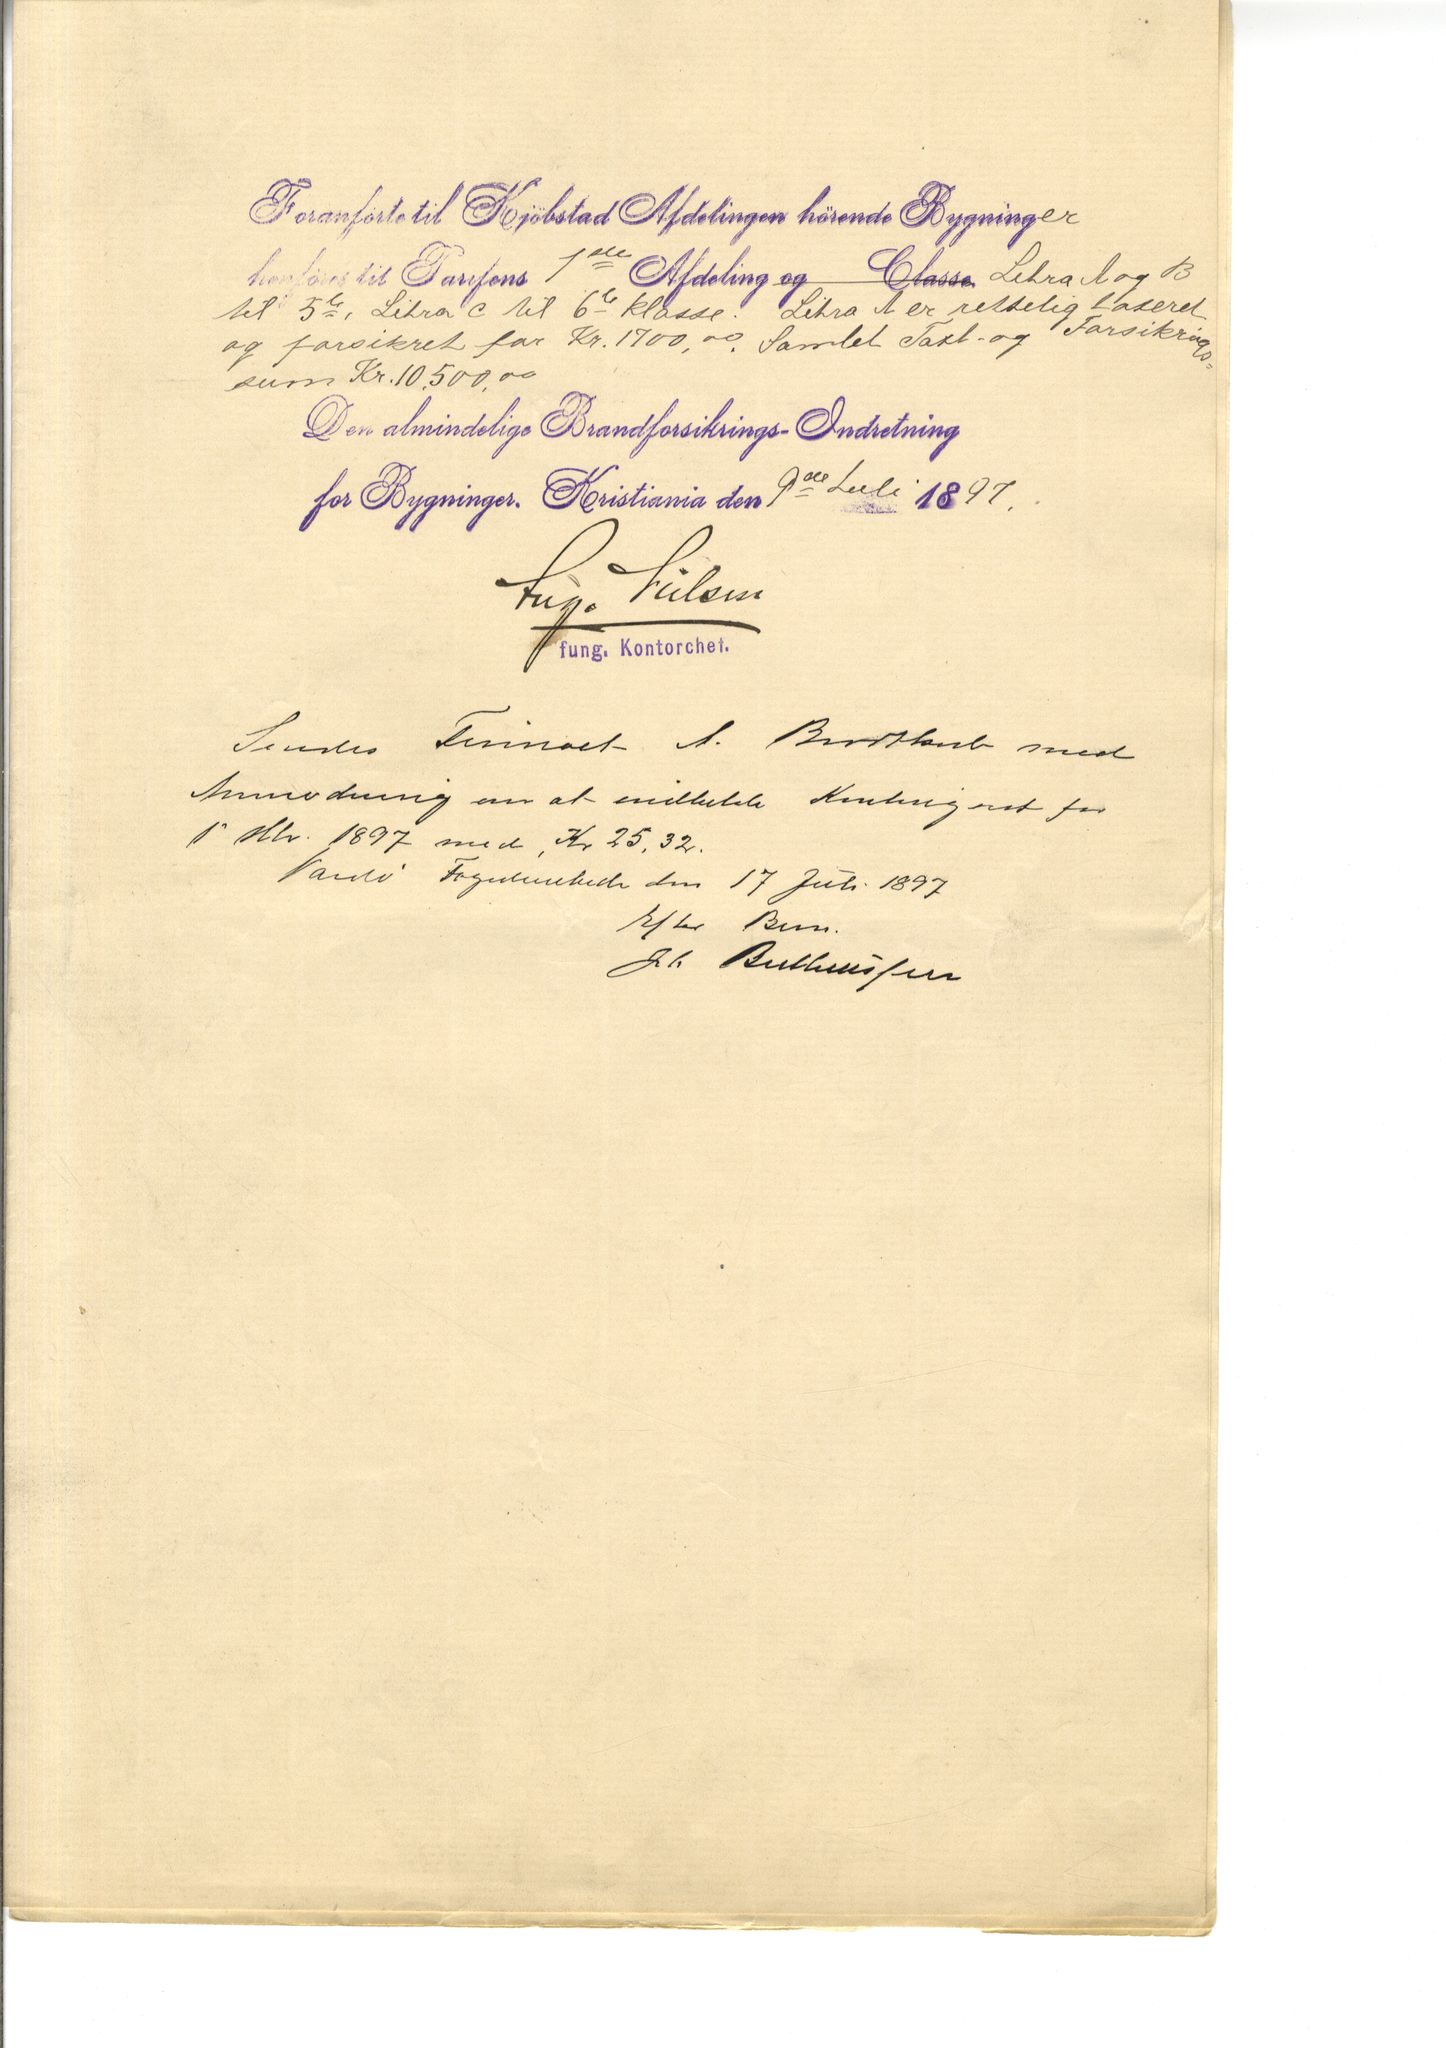 Foranförte til Kjöbstad Afdelingen hörende Bygninger
henföres til Tarifens 1ste Afdeling og Classe Litra A og B
til 5te, Litra C til 6te Klasse. Litra A er rettelig taxeret
og forsikret for Kr. 1700,00. Samlet Taxt- og Forsikrings-
sum Kr. 10,500,00
Den almindelige Brandforsikrings-Indretning
for Bygninger. Kristiania den 9de Juli 1897.
Aug. Nielsen
fung. Kontorchef.
Sendes A. med
Anmodning om at indbetale Kontingent for
1ste Hlv. 1897 med Kr 25,32.
Vardö den 17 Juli 1897
Efter Bem.